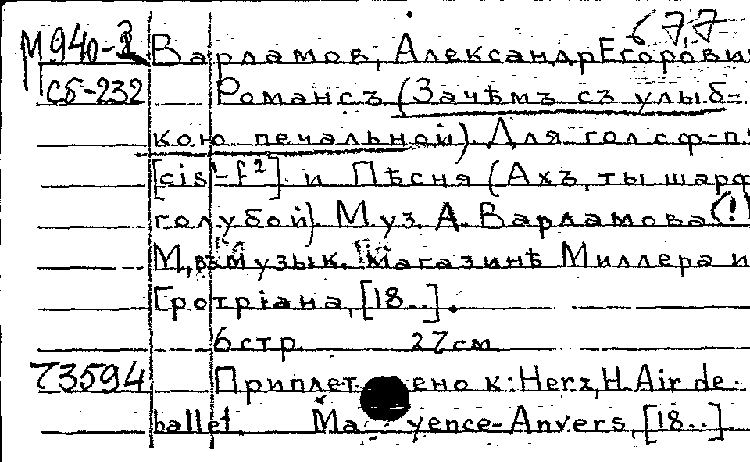 677
М940-2 Варламов, Александр Егорови
Сб-232 Романсъ (Зачѣмъ съ улыб-
кою печальной). Для гол. с ф-п.
[cis¹-f²] и Пѣсня (Ахъ, ты шарф
голубой). Муз. А. Варламова (!)
М., въ Музык. Магазинѣ Миллера и
Гротріана, [18..].
6 стр. 27 см
73594 Приплетено к: Herz, H. Air de
ballet. Mayence-Anvers, [18..]